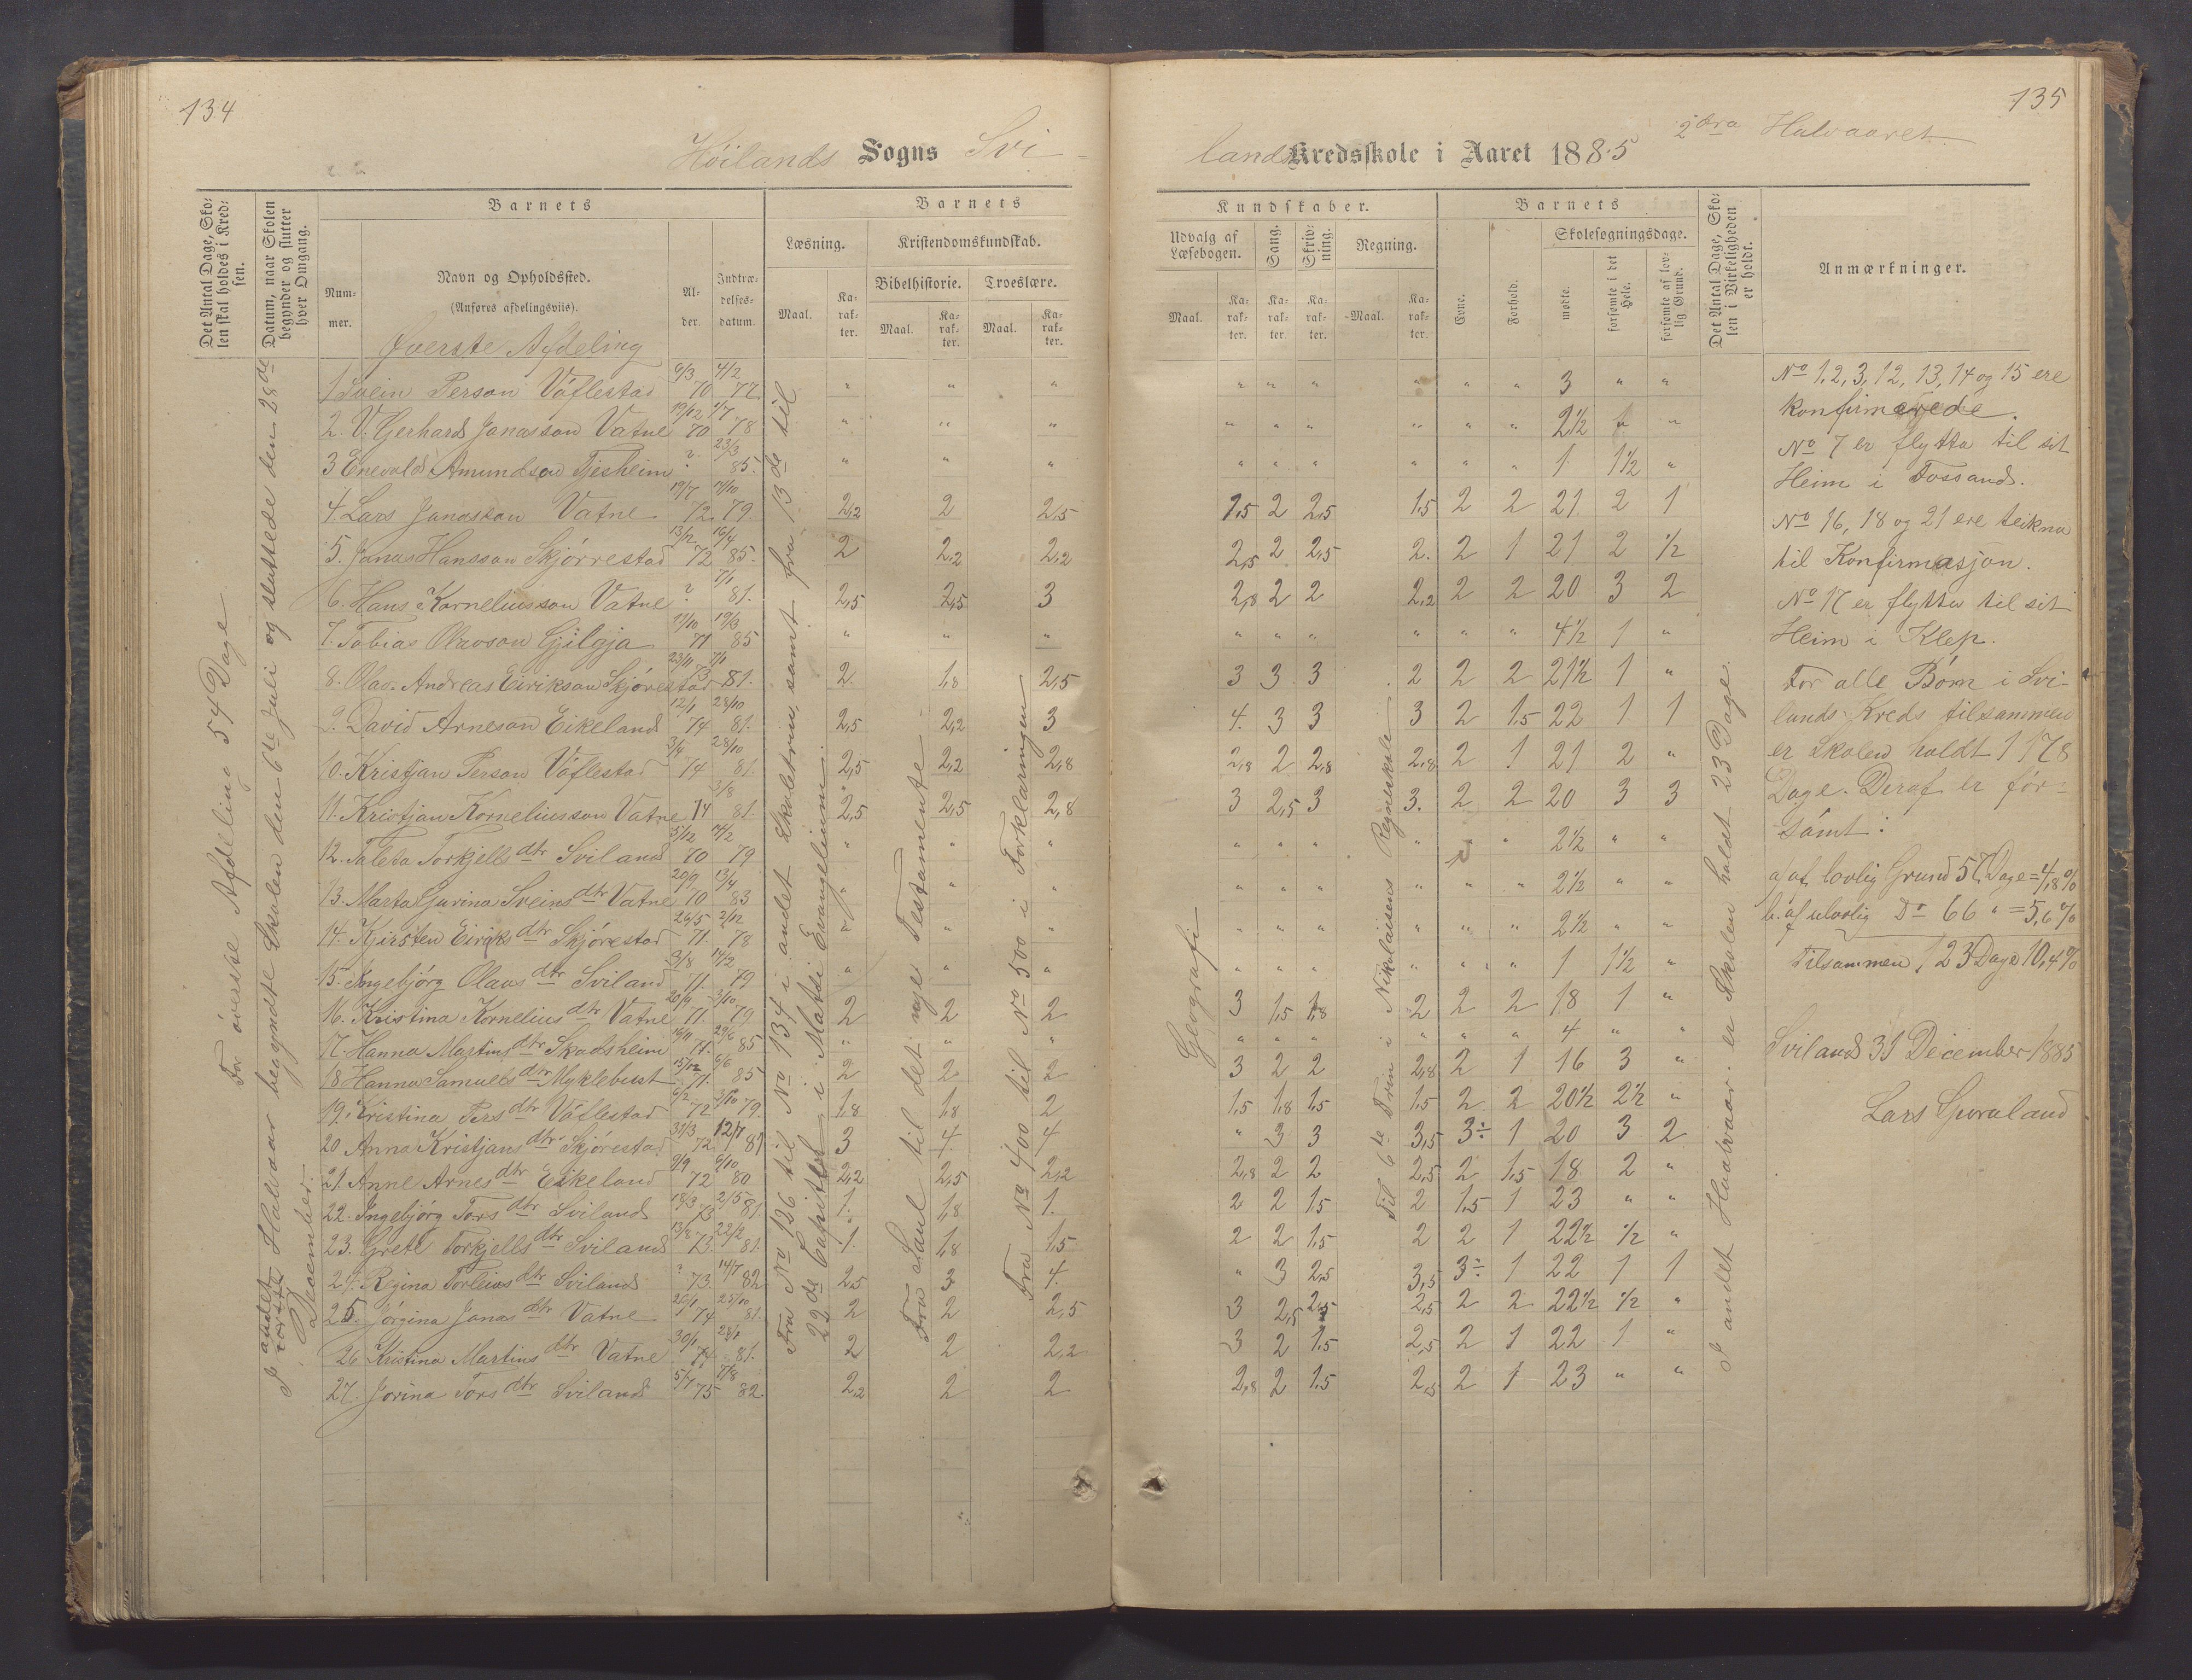 134
Höilands Sogns Svi-
Det Antal Dage, Sko-
len skal holdes i Kred-
sen.
Datum, naar Skolen
begynder og slutter
hver Omgang.
Barnets
Num-
mer.
Navn og Opholdssted.
(Anføres afdelingsviis).
Al-
der.
Indtræ-
delses-
datum.
Barnets
Læsning.
Kristendomskundskab.
Bibelhistorie.
Troeslære.
Maal.
Ka-
rak-
ter.
Maal.
Ka-
rak-
ter.
Maal.
Ka-
rak-
ter.
For överste Afdeling 54 Dage
I andet Halvaar begyndte Skolen den 6te Juli og sluttede den 28de
December.
Fra No 126 til No 134 i andet Skoletrin, samt fra 13de til
22de Capittel i Matthi Evangelium.
Fra Saul til det nye Testamente
Fra No 400 til No 500 i Forklaringen
Överste Afdeling
1 Svein Person Vöflestad 6/3 70 4/2 77. " " "
2. V. Gerhard Jonasson Vatne 19/12 70 1/7 78 " " "
3 Enevald Amundson Tjesheim ? 23/3 85. " " "
4. Lars Jonasson Vatne 19/7 72 14/10 79. 2,2 2 2,5
5. Jonas Hansson Skjörrestad 13/12 72 16/4 85. 2 2,2 2,2
6. Hans Korneliusson Vatne ? 7/1 81. 2,5 2,5 3
7. Tobias Olavson Gjilgja 11/10 71 19/3 85 " " "
8. Olav Andreas Eirikson Skjörestad 23/11 73 7/1 81. 2. 1,8 2,5
9. David Arneson Eikeland 12/1 74 28/10 81. 2,5 2,2 3
10. Kristjan Person Vöflestad 3/4 74 28/10 81. 2,5 2,2 2,8
11. Kristjan Kornelius son Vatne 74 3/8 81. 2,5 2,5 2,8
12. Taleta Torkjells dtr Sviland 5/12 70 14/2 79 " " "
13. Marta Gurina Sveins dtr Vatne 20/9 70 13/4 83 " " "
14. Kjirsten Eiriks dtr Skjörestad 26/5 71. 2/12 78 " " "
15. Ingebjörg Olaus dtr Sviland 3/8 71. 14/2 79 " " "
16. Kristina Kornelius dtr Vatne 20/9 71. 3/10 79 2 2 2
17. Hanna Martins dtr Skadsheim 16/11 71. 29/6 85 " " "
18 Hanna Samuels dtr Myklebust 15/12 71. 6/6 85 2 2 2
19. Kristina Pers dtr Vöflestad 6/2 72 3/10 79. 1,8 1,8 2
20 Anna Kristjans dtr Skjörestad 31/3 72 12/1 81 3 4. 4
21. Anne Arnes dtr Eikeland 9/9 72 6/10 80 2,2 2,5 2,2
22. Ingebjörg Tors dtr Sviland 18/3 73 2/5 81 1. 1,8 1.
23. Grete Torkjells dtr Sviland 13/8 73. 22/2 81. 1. 1,8 1,5
24. Regina Torleivs dtr Sviland ? 73. 14/7 82 2,5 3 4.
25. Jörgina Jonas dtr Vatne 26/1 74 28/10 81. 2 2 2,5
26 Kristina Martins dtr Vatne 30/1 74 28/1 81. 2 2 2,2
27. Jorina Tors dtr Sviland 5/7 75 7/8 82. 2,2 2 2
135
2dra Halvaaret
lands Kredsskole i Aaret 1885
Kundskaber.
Udvalg af
Læsebogen.
Sang.
Skriv-
ning.
Regning.
Maal.
Ka-
rak-
ter.
Ka-
rak-
ter.
Ka-
rak-
ter.
Maal.
Ka-
rak-
ter.
Barnets
Evne.
Forhold.
Skolesøgningsdage.
mødte.
forsømte i det
Hele.
forsømte af lov-
lig Grund.
Det Antal Dage, Sko-
len i Virkeligheden
er holdt.
Anmærkninger.
Geografi
Til 6te Trin i Nikolaisens Regneskole
I andet Halvaar er Skolen holdt 23 Dage.
" " " " " " 3 " "
" " " " " " 2½ " "
" " " " " " 1 1½ "
1,5 2 2,5 1,5 2 2 21 2 1
2,5 2 2,5 2. 2 1 21 2 ½
2,8 2 2 2,2 2 2 20 3 2
" " " " " " 4½ 1 "
3 3 3 2 2 2 21½ 1 "
4. 3 3 3 2 1,5 22 1 1
2,8 2 2,8 2,8 2 1 21 2 "
3 2,5 3 3. 2 2 20 3 3
" " " " " " 2½ " "
" " " " " " 2½ " "
" " " " " " 2½ " "
" " " " " " 1 1½ "
3 1,5 1,8 2 2 2 18 1 "
" " " " " " 4 " "
3 2 2 2,8 2 1 16 3 "
1,5 1,8 1,5 1,5 2 2 20½ 2½ "
" 3 3 3,5 3÷ 1 20 3 2
2,8 2 2 2,5 2 1,5 18 2 "
2 2 1,5 2 1,5 1 23 " "
2 2 1,5 2 2 1 22½ ½ "
" 3 2,5 3,5 3÷ 1 22 1 1
3 2,5 2,5 2,5 2 2 22½ ½ "
3 2 1,5 2,5 2 1 22 1 "
2,8 2 1,5 2,5 2 1 23 " "
No 1, 2, 3, 12, 13, 14 og 15 ere
konfirmerede.
No 7 er flytta til sit
Heim i Fossand.
No 16, 18 og 21 ere teikna
til Konfirmasjon.
No 17 er flytta til sit
Heim i Klep.
For alle Börn i Svi-
lands Kreds tilsammen
er Skolen holdt 1178
Dage. Deraf er för-
sömt:
a) af lovlig Grund 57 Dage = 4,8%
b. af ulovlig Do 66 " = 5,6%
Tilsammen 123 Dage 10,4%
Sviland 31 December 1885
Lars